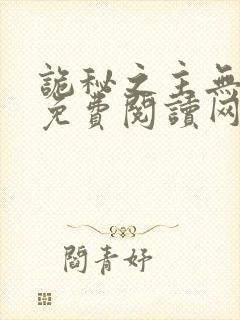 詭秘之主無
免費閱讀网
閻青妤